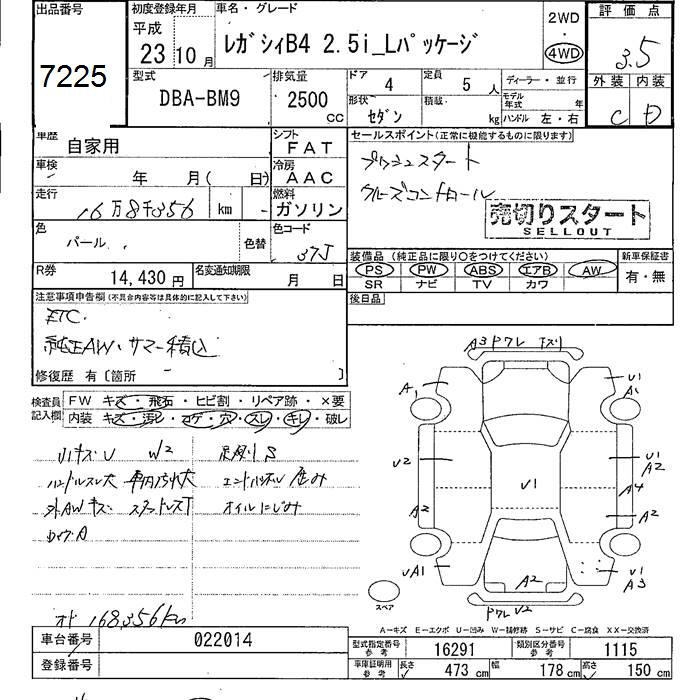 出品番号
7225
初度登録年月
平成
23年10月
車名・グレード
レガシィB4 2.5i_Lパッケージ
2WD
・
4WD
評価点
3.5
型式
DBA-BM9
排気量
2500
CC
ドア
4
定員
5人
ディーラー・並行
形状
セダン
積載
kg
モデル年式
年
ハンドル 左・右
外装
内装
C
D
車歴
自家用
シフト
FAT
車検
年 月( 日)
冷房
AAC
走行
16万8千356 km
燃料
ガソリン
色
パール
色替
色コード
37J
R券
14,430 円
名変通知期限
月 日
セールスポイント(正常に機能するものに限ります)
プッシュスタート
クルーズコントロール
売切りスタート
SELLOUT
装備品(純正品に限り○をつけてください)
PS
PW
ABS
エアB
AW
SR
ナビ
TV
カワ
新車保証書
有・無
後日品
注意事項申告欄(不具合内容等は具体的に記入して下さい)
ETC.
純正AW・サマー積込
修復歴 有〔箇所 〕
検査員記入欄
FW キズ・飛石・ヒビ割・リペア跡・×要
内装 キズ・汚レ・コゲ・穴・スレ・キレ・破レ
小キズU W2
ハンドルスレ大 車内汚れ大
外AWキズ スタッドレスT
ロッカA
足廻りS
エンドパネル歪み
オイルにじみ
メーター 168,356km
A3 ワレ
A1
U1
A1
U2
U1
U1
A2
A4
A2
A2
UA1
U1
A3
A2
ワレ U2
スペア
A－キズ E－エクボ U－凹み W－補修跡 S－サビ C－腐食 XX－交換済
車台番号
022014
登録番号
型式指定番号
参考
16291
類別区分番号
参考
1115
車庫証明用
参考
長さ
473 cm
幅
178 cm
高さ
150 cm